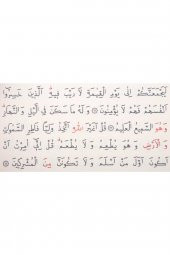 لَيَجْمَعَنَّكُمْ اِلٰى يَوْمِ الْقِيٰمَةِ لَا رَيْبَ ف۪يهِۜ اَلَّذ۪ينَ خَسِرُٓوا
اَنْفُسَهُمْ فَهُمْ لَا يُؤْمِنُونَ ۝ وَلَهُ مَا سَكَنَ فِي الَّيْلِ وَالنَّهَارِۜ
وَهُوَ السَّم۪يعُ الْعَل۪يمُ ۝ قُلْ اَغَيْرَ اللّٰهِ اَتَّخِذُ وَلِيًّا فَاطِرِ السَّمٰوَاتِ
وَالْاَرْضِ وَهُوَ يُطْعِمُ وَلَا يُطْعَمُۜ قُلْ اِنّ۪ٓي اُمِرْتُ اَنْ
اَكُونَ اَوَّلَ مَنْ اَسْلَمَ وَلَا تَكُونَنَّ مِنَ الْمُشْرِك۪ينَ ۝